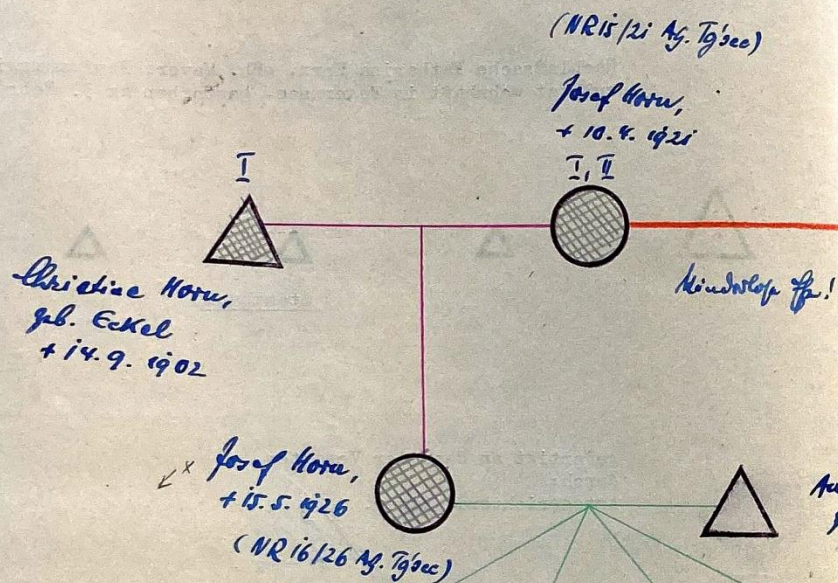 (NR 15/21 Ag. Tg'see)
Josef Horn,
+ 10.4. 1921
I
I, II
Christine Horn,
geb. Eckel
+ 14.9. 1902
Josef Horn,
+ 15.5. 1926
(NR 16/26 Ag. Tg'see)